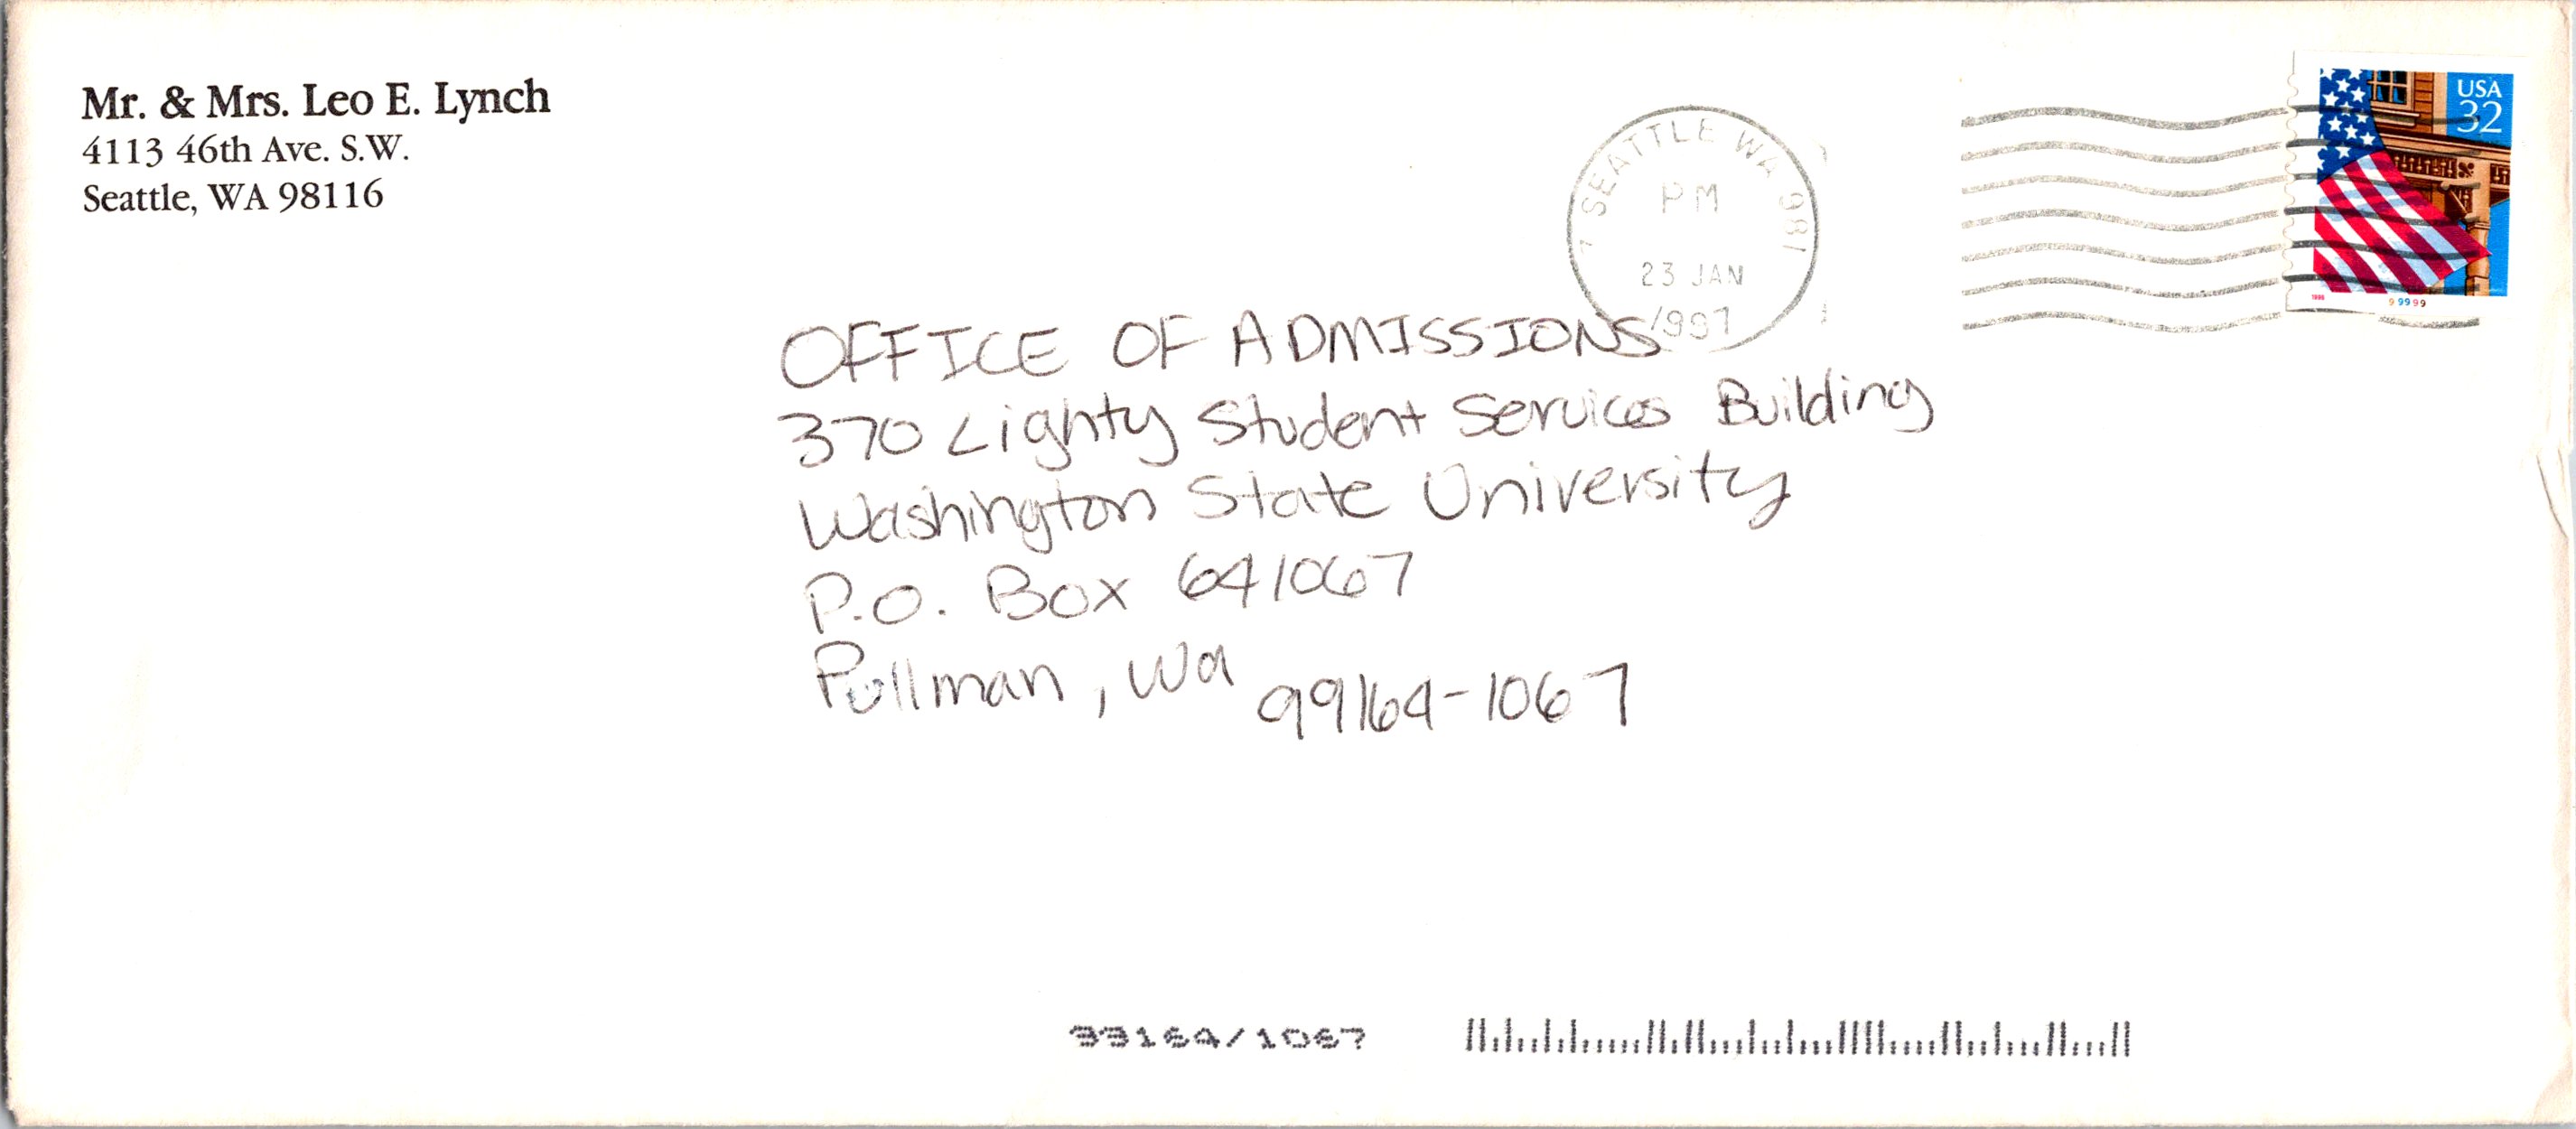 Mr. & Mrs. Leo E. Lynch
4113 46th Ave. S.W.
Seattle, WA 98116
SEATTLE WA 981
PM
23 JAN
1997
USA
32
OFFICE OF ADMISSIONS
370 Lighty Student Services Building
Washington State University
P.O. Box 641067
Pullman, Wa 99164-1067
99164/1067